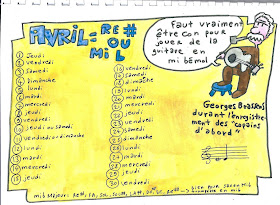 AVRIL = RE #
OU
Mi b
il faut vraiment
être con pour
jouer de la
guitare en
mi bémol
Georges Brassens
durant l'enregistre-
ment des "copains
d'abord"
1 jeudi
2 vendredi
3 samedi
4 dimanche
5 lundi
6 mardi
7 mercredi
8 jeudi
9 vendredi
10 jeudi ou samedi
11 vendredi ou dimanche
12 lundi
13 mardi
14 mercredi
15 jeudi
16 vendredi
17 samedi
18 dimanche
19 lundi
20 mardi
21 mercredi
22 jeudi
23 vendredi
24 samedi
25 dimanche
26 lundi
27 mardi
28 mercredi
29 jeudi
30 vendredi
mib Majeur:
bien pour